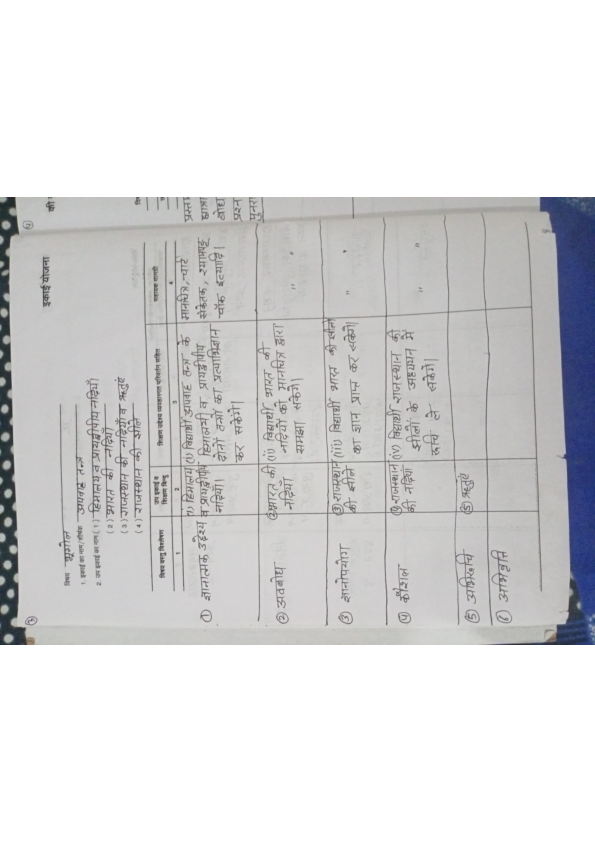 इकाई योजना
विषय भूगोल
1. इकाई का नाम/शीर्षक अपवाह तन्त्र
2. उप इकाई का नाम (1) हिमालय व प्रायद्वीपीय नदियाँ
(2) भारत की नदियाँ
(3) राजस्थान की नदियाँ व ऋतुएं
(4) राजस्थान की झीलें
विषय वस्तु विश्लेषण
उप इकाई व शिक्षण बिन्दु
शिक्षण उद्देश्य व्यवहारगत परिवर्तन सहित
सहायक सामग्री
1 2 3 4
① ज्ञानात्मक उद्देश्य
(1) हिमालय
व प्रायद्वीपीय
नदियाँ।
(i) विद्यार्थी अपवाह तन्त्र के
हिमालयी व प्रायद्वीपीय
दोनों तन्त्रों का प्रत्याभिज्ञान
कर सकेंगे।
मानचित्र, चार्ट
संकेतक, श्यामपट्ट
चॉक इत्यादि।
② अवबोध
② भारत की
नदियाँ
(ii) विद्यार्थी भारत की
नदियों को मानचित्र द्वारा
समझा सकेंगे।
" "
③ ज्ञानोपयोग
③ राजस्थान
की झीलें
(iii) विद्यार्थी भारत की झीलों
का ज्ञान प्राप्त कर सकेंगे।
" "
④ कौशल
④ राजस्थान
की नदियां
(iv) विद्यार्थी राजस्थान की
झीलों के अध्ययन में
रूचि ले सकेंगे।
" "
⑤ अभिरूचि
⑤ ऋतुएं
⑥ अभिवृत्ति